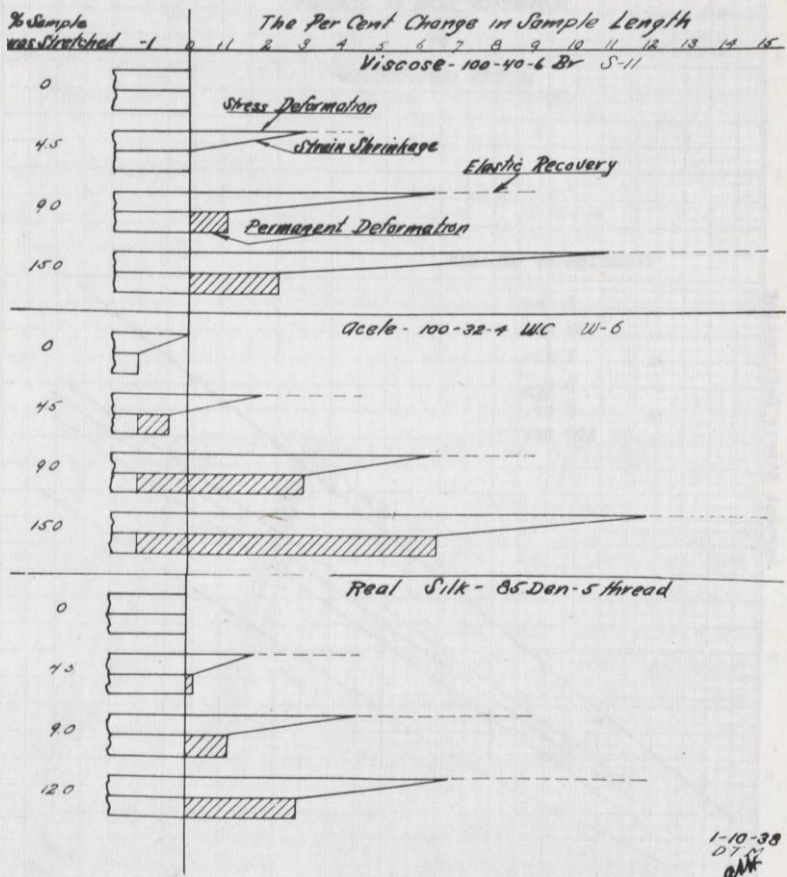 % Sample The Per Cent Change in Sample Length
was Stretched -1 0 +1 2 3 4 5 6 7 8 9 10 11 12 13 14 15
Viscose - 100-40-6 Br S-11
0
Stress Deformation
4.5
Strain Shrinkage
Elastic Recovery
9.0
Permanent Deformation
15.0
Acele - 100-32-4 WC W-6
0
4.5
9.0
15.0
Real Silk - 85 Den - 5 thread
0
4.5
9.0
12.0
1-10-38
DTM